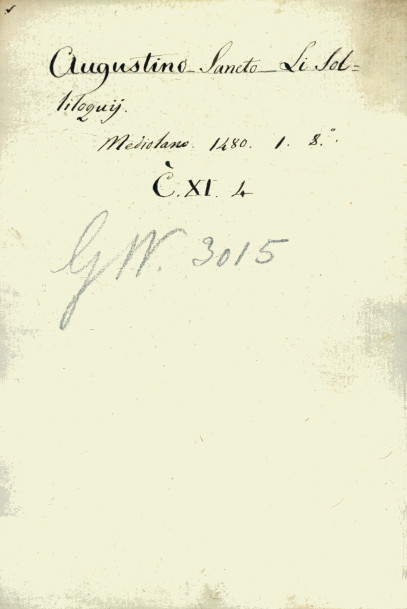 Augustino_Sancto_Li Sol=
liloquij.
Mediolano. 1480. 1. 8.°
Č.XI. 4
GW. 3015